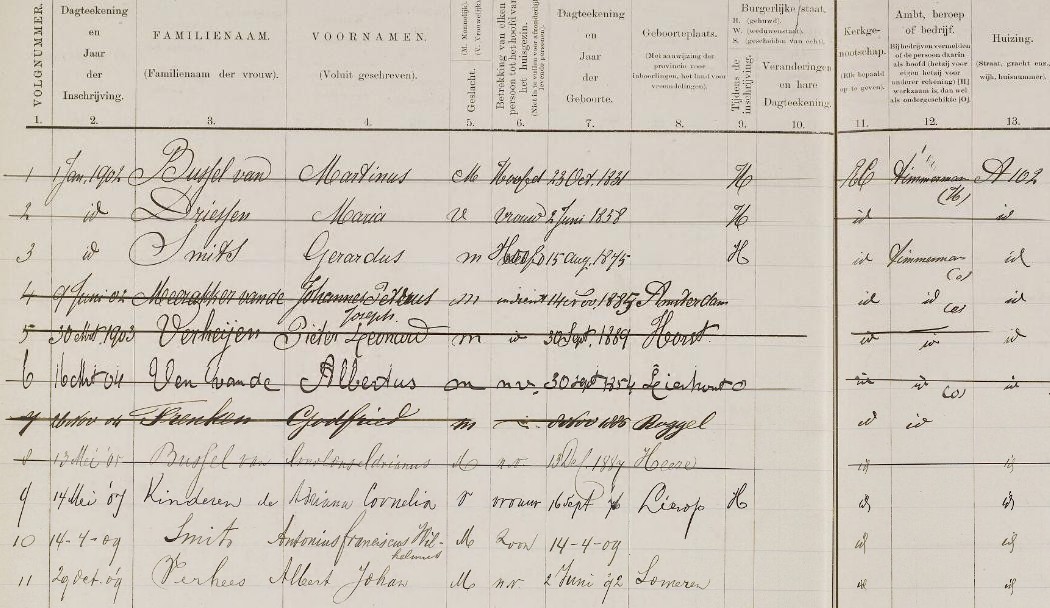 VOLGNUMMER. Dagteekening en Jaar der Inschrijving. FAMILIENAAM. (Familienaam der vrouw). VOORNAMEN. (Voluit geschreven). Geslacht. (M. Mannelijk). (V. Vrouwelijk). Betrekking van elken persoon tot het hoofd van het huisgezin. Dagteekening en Jaar der Geboorte. Geboorteplaats. (Met aanwijzing der provincie voor inboorlingen, het land voor vreemdelingen). Burgerlijke staat. H. (gehuwd). W. (weduwenstaat). S. (gescheiden van echt). Tijdens de inschrijving. Veranderingen en hare Dagteekening. Kerkgenootschap. (Elk bepaald op te geven). Ambt, beroep of bedrijf. Bij bedrijven vermelden of de persoon daarin als hoofd (hetzij voor eigen hetzij voor anderer rekening) [H] werkzaam is, dan wel als ondergeschikte [O]. Huizing. (Straat, gracht enz. wijk, huisnummer).
1. 2. 3. 4. 5. 6. 7. 8. 9. 10. 11. 12. 13.
1 1 Jan. 1902 Bussel van Martinus M Hoofd 23 Oct. 1831 H RC Timmerman (H) A 102
2 id Driessen Maria V vrouw 2 Juni 1838 H id id
3 id Smits Gerardus m Hoofd 15 aug. 1875 H id Timmerman (O) id
4 9 Juni 02 van de Johannes Petrus Joseph m 14 Nov 1885 Amsterdam id id (O) id
5 30 1903 Verheijen Pieter Leonard m id 30 Sept. 1889 Horst id id id
6 16 04 Ven van de Albertus m nv 30 Sept 1854 Lieshout O id id (O) id
7 26 Nov 04 Frenken Godfried m Roggel id id
8 13 Mei '05 Bussel van Adrianus M n.v. 1889 Heeze id id
9 14 Mei '07 Kinderen de Adriana Cornelia V vrouw 16 Sept 76 Lierop H id id
10 14-4-09 Smits Antonius franciscus Wilhelmus M Zoon 14-4-09 id id
11 29 Oct. '09 Verhees Albert Johan M n.v. 2 Juni '92 Someren id id